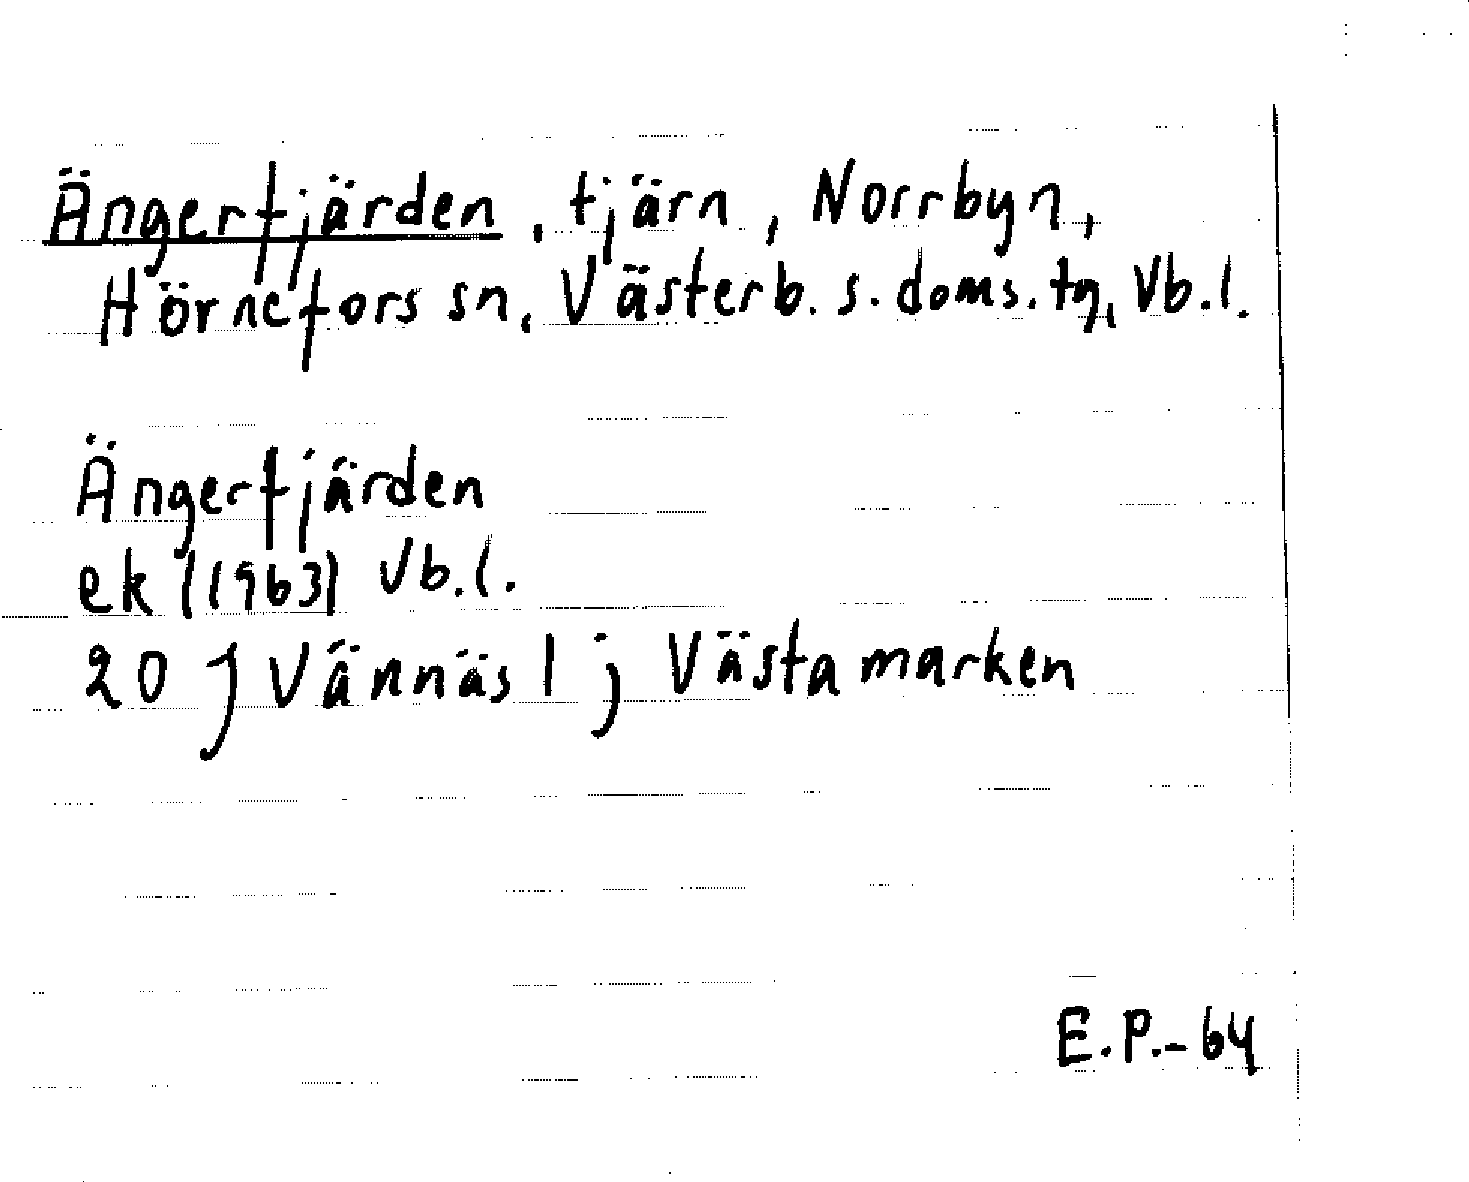 Ängerfjärden, tjärn, Norrbyn,
Hörnefors sn, Västerb. s. doms. tg, Vb.l.
Ängerfjärden
ek (1963) Vb.l.
20 J Vännäs l j Västamarken
E.P.-64